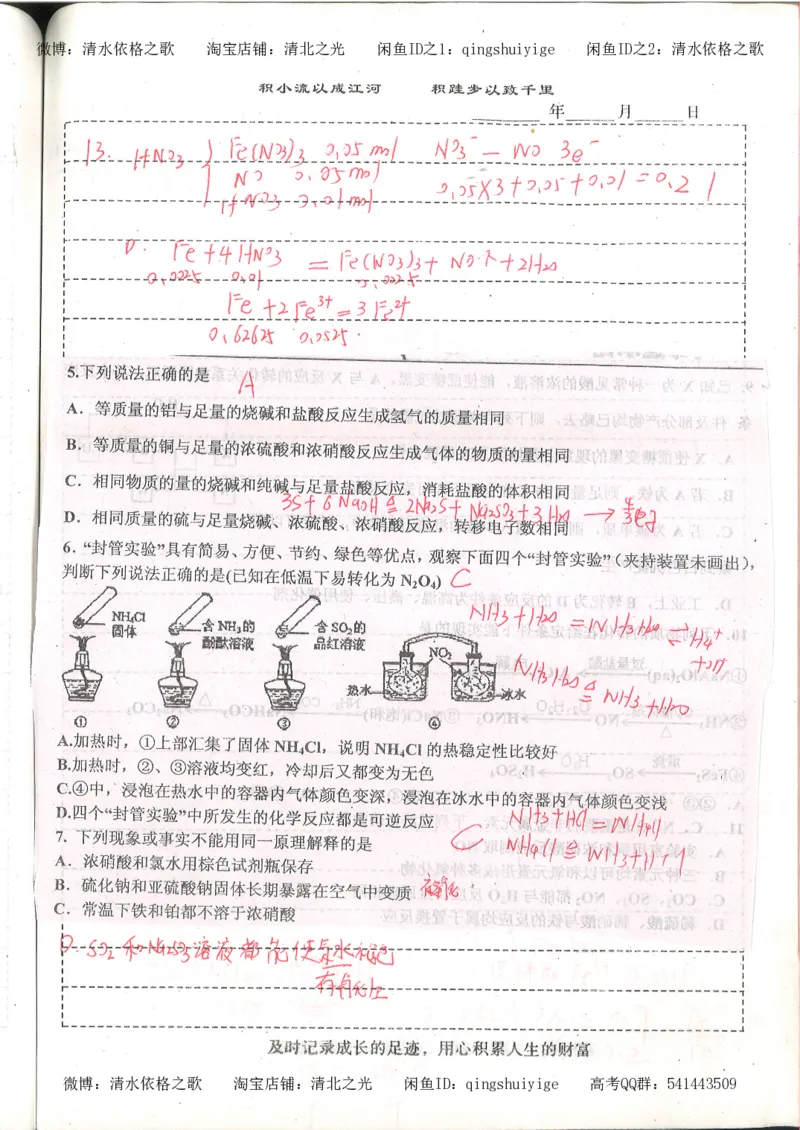 微博：清水依格之歌 淘宝店铺：清北之光 闲鱼ID之1：qingshuiyige 闲鱼ID之2：清水依格之歌
积小流以成江河 积跬步以致千里
年 月 日
13. HNO3 Fe(NO3)3 0.05 mol NO3⁻ — NO 3e⁻
NO 0.05mol
HNO3 0.01mol
0.05X3+0.05+0.01=0.21
D. Fe+4HNO3 = Fe(NO3)3+NO↑+2H2O
0.0025 0.01 0.0025
Fe+2Fe³⁺=3Fe²⁺
0.62625 0.0525
5.下列说法正确的是 A
A．等质量的铝与足量的烧碱和盐酸反应生成氢气的质量相同
B．等质量的铜与足量的浓硫酸和浓硝酸反应生成气体的物质的量相同
C．相同物质的量的烧碱和纯碱与足量盐酸反应，消耗盐酸的体积相同
3S+6NaOH≜2Na2S+Na2SO3+3H2O
D．相同质量的硫与足量烧碱、浓硫酸、浓硝酸反应，转移电子数相同
6．“封管实验”具有简易、方便、节约、绿色等优点，观察下面四个“封管实验”（夹持装置未画出），
判断下列说法正确的是(已知在低温下易转化为 N₂O₄) C
NH₄Cl
固体
含 NH₃的
酚酞溶液
含 SO₂的
品红溶液
NO₂
热水
冰水
① ② ③ ④
NH3+H2O=NH3H2O⇌NH4⁺
+OH⁻
NH3H2O≜NH3+H2O
A.加热时，①上部汇集了固体 NH₄Cl，说明 NH₄Cl 的热稳定性比较好
B.加热时，②、③溶液均变红，冷却后又都变为无色
C.④中，浸泡在热水中的容器内气体颜色变深，浸泡在冰水中的容器内气体颜色变浅
D.四个“封管实验”中所发生的化学反应都是可逆反应
NH3+HCl=NH4Cl
NH4Cl≜NH3+HCl
7．下列现象或事实不能用同一原理解释的是 C
A．浓硝酸和氯水用棕色试剂瓶保存
B．硫化钠和亚硫酸钠固体长期暴露在空气中变质 被氧化
C．常温下铁和铂都不溶于浓硝酸
D. SO2和Na2SO3溶液都能使氯水褪色
有氧化性
及时记录成长的足迹，用心积累人生的财富
微博：清水依格之歌 淘宝店铺：清北之光 闲鱼ID：qingshuiyige 高考QQ群：541443509